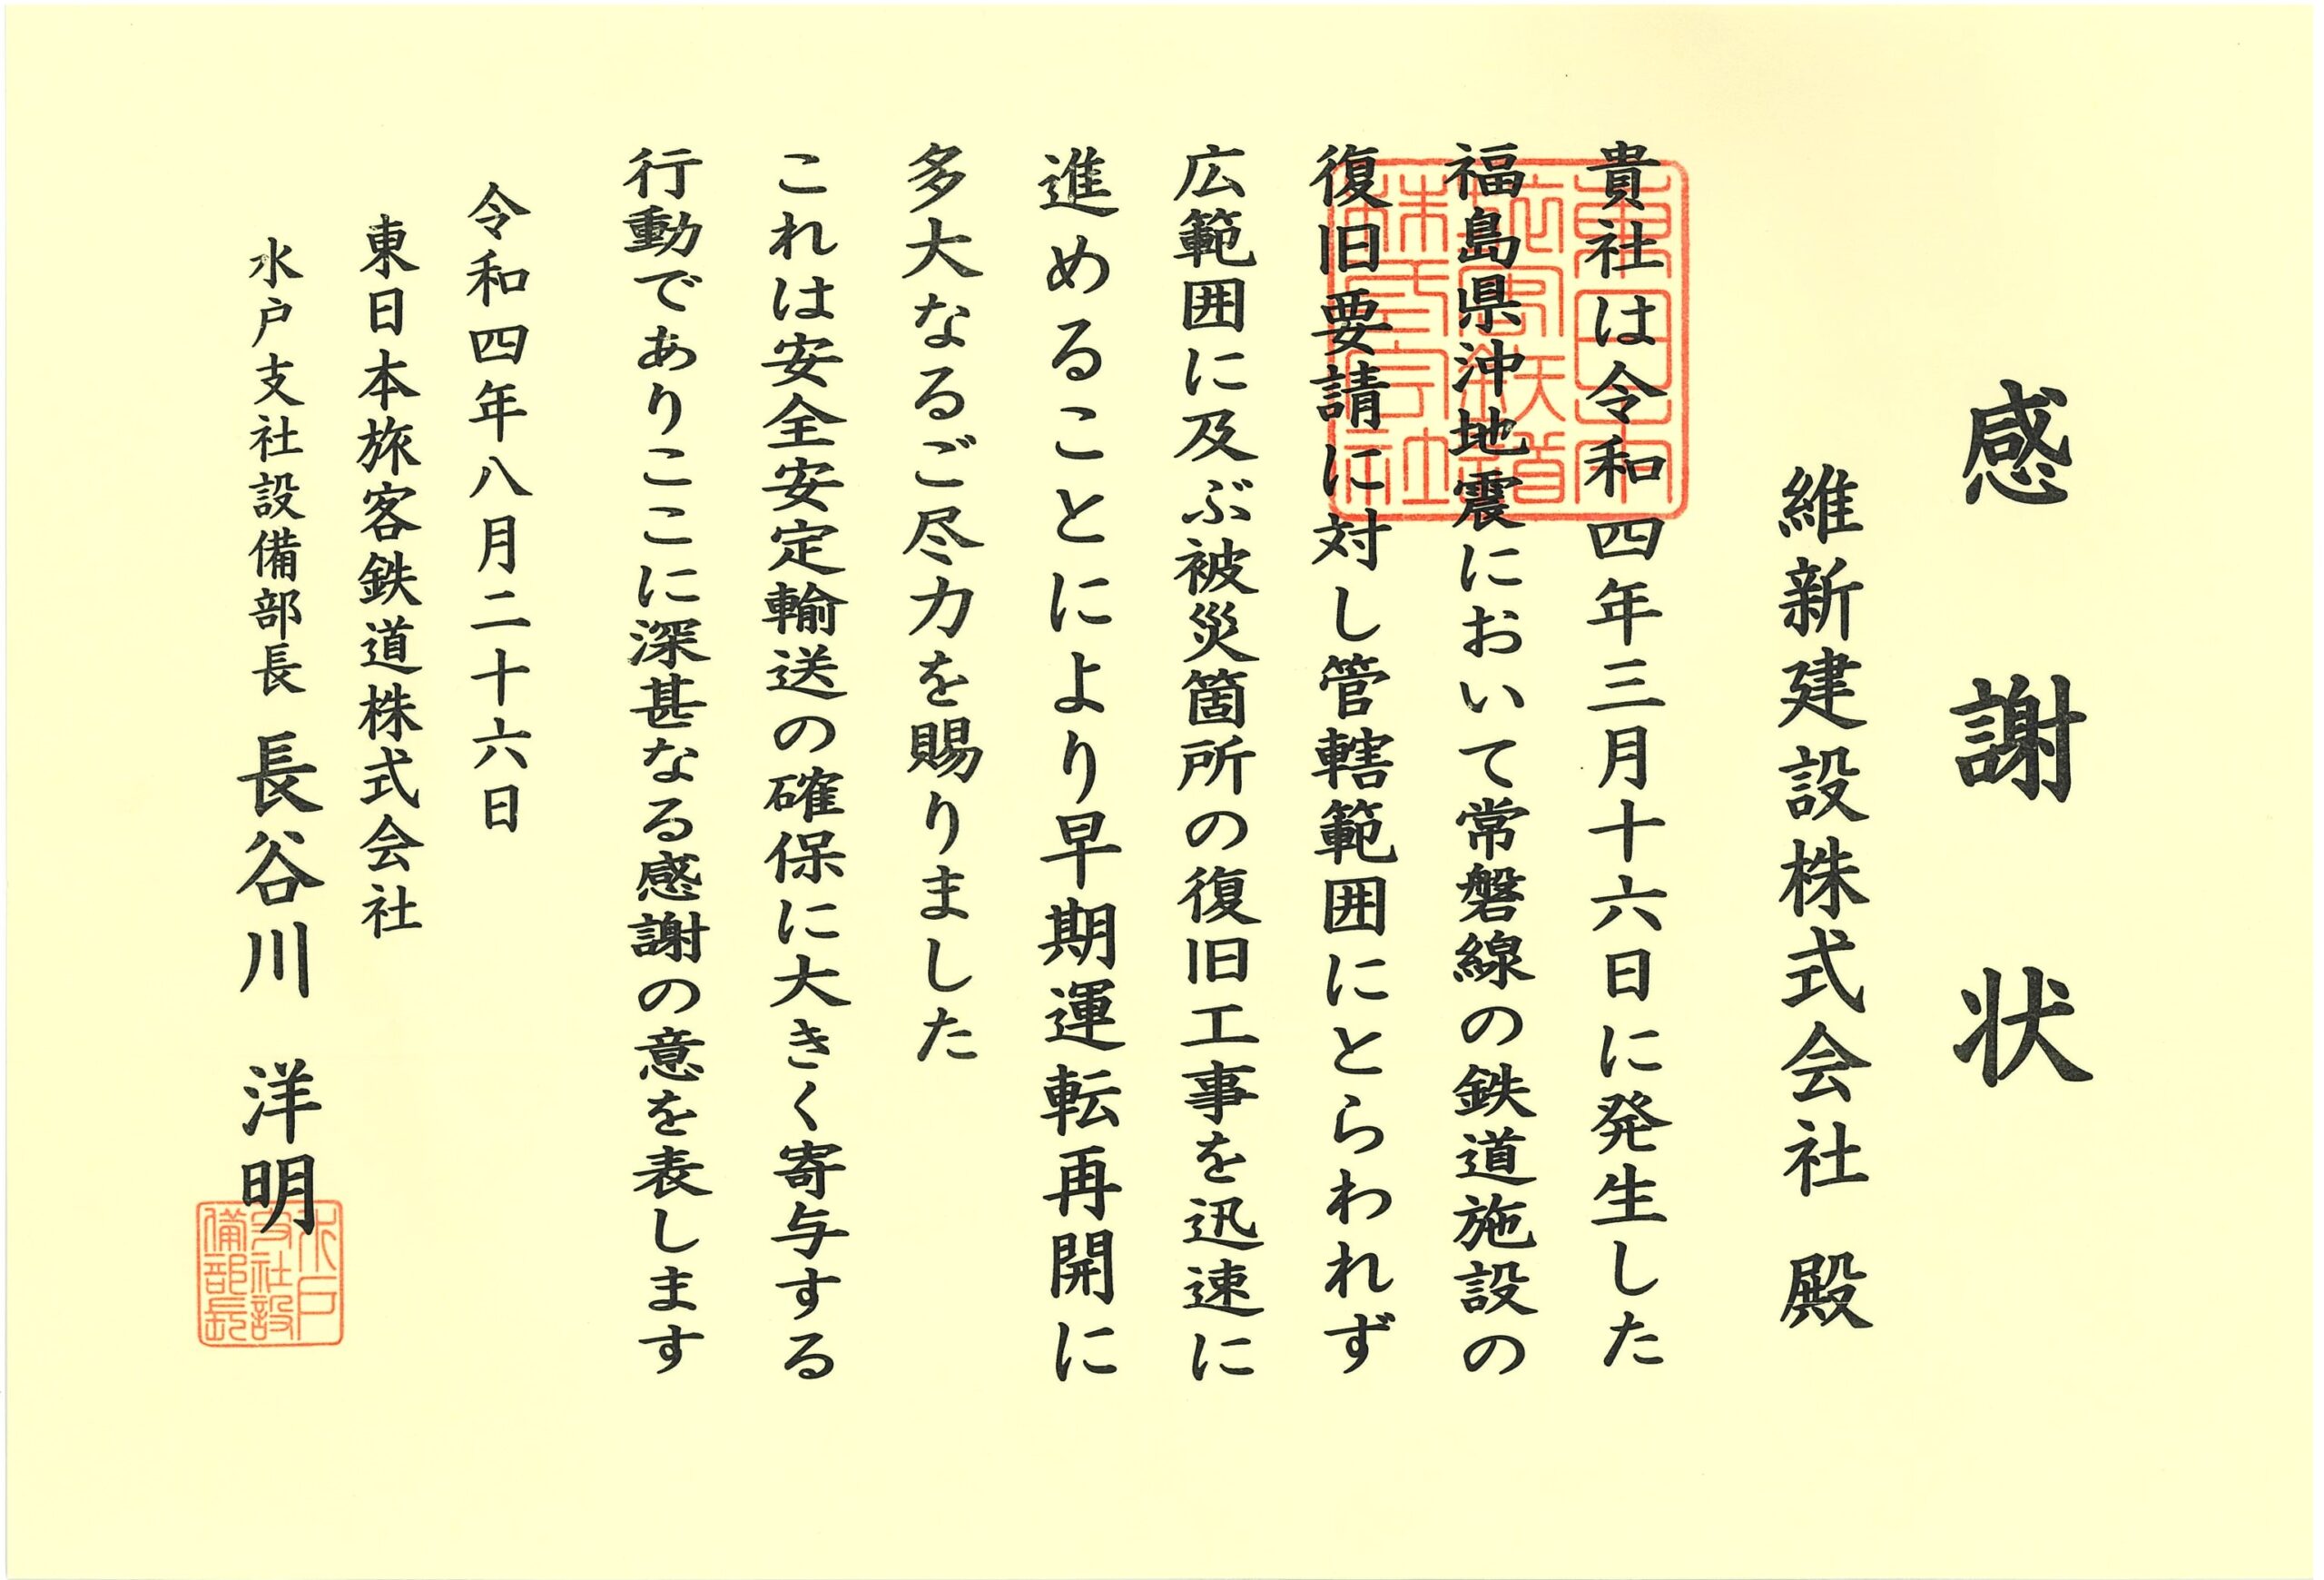 感謝状
維新建設株式会社 殿
貴社は令和四年三月十六日に発生した
福島県沖地震において常磐線の鉄道施設の
復旧要請に対し管轄範囲にとらわれず
広範囲に及ぶ被災箇所の復旧工事を迅速に
進めることにより早期運転再開に
多大なるご尽力を賜りました
これは安全安定輸送の確保に大きく寄与する
行動でありここに深甚なる感謝の意を表します
令和四年八月二十六日
東日本旅客鉄道株式会社
水戸支社設備部長 長谷川 洋明
水戸
支社設
備部長